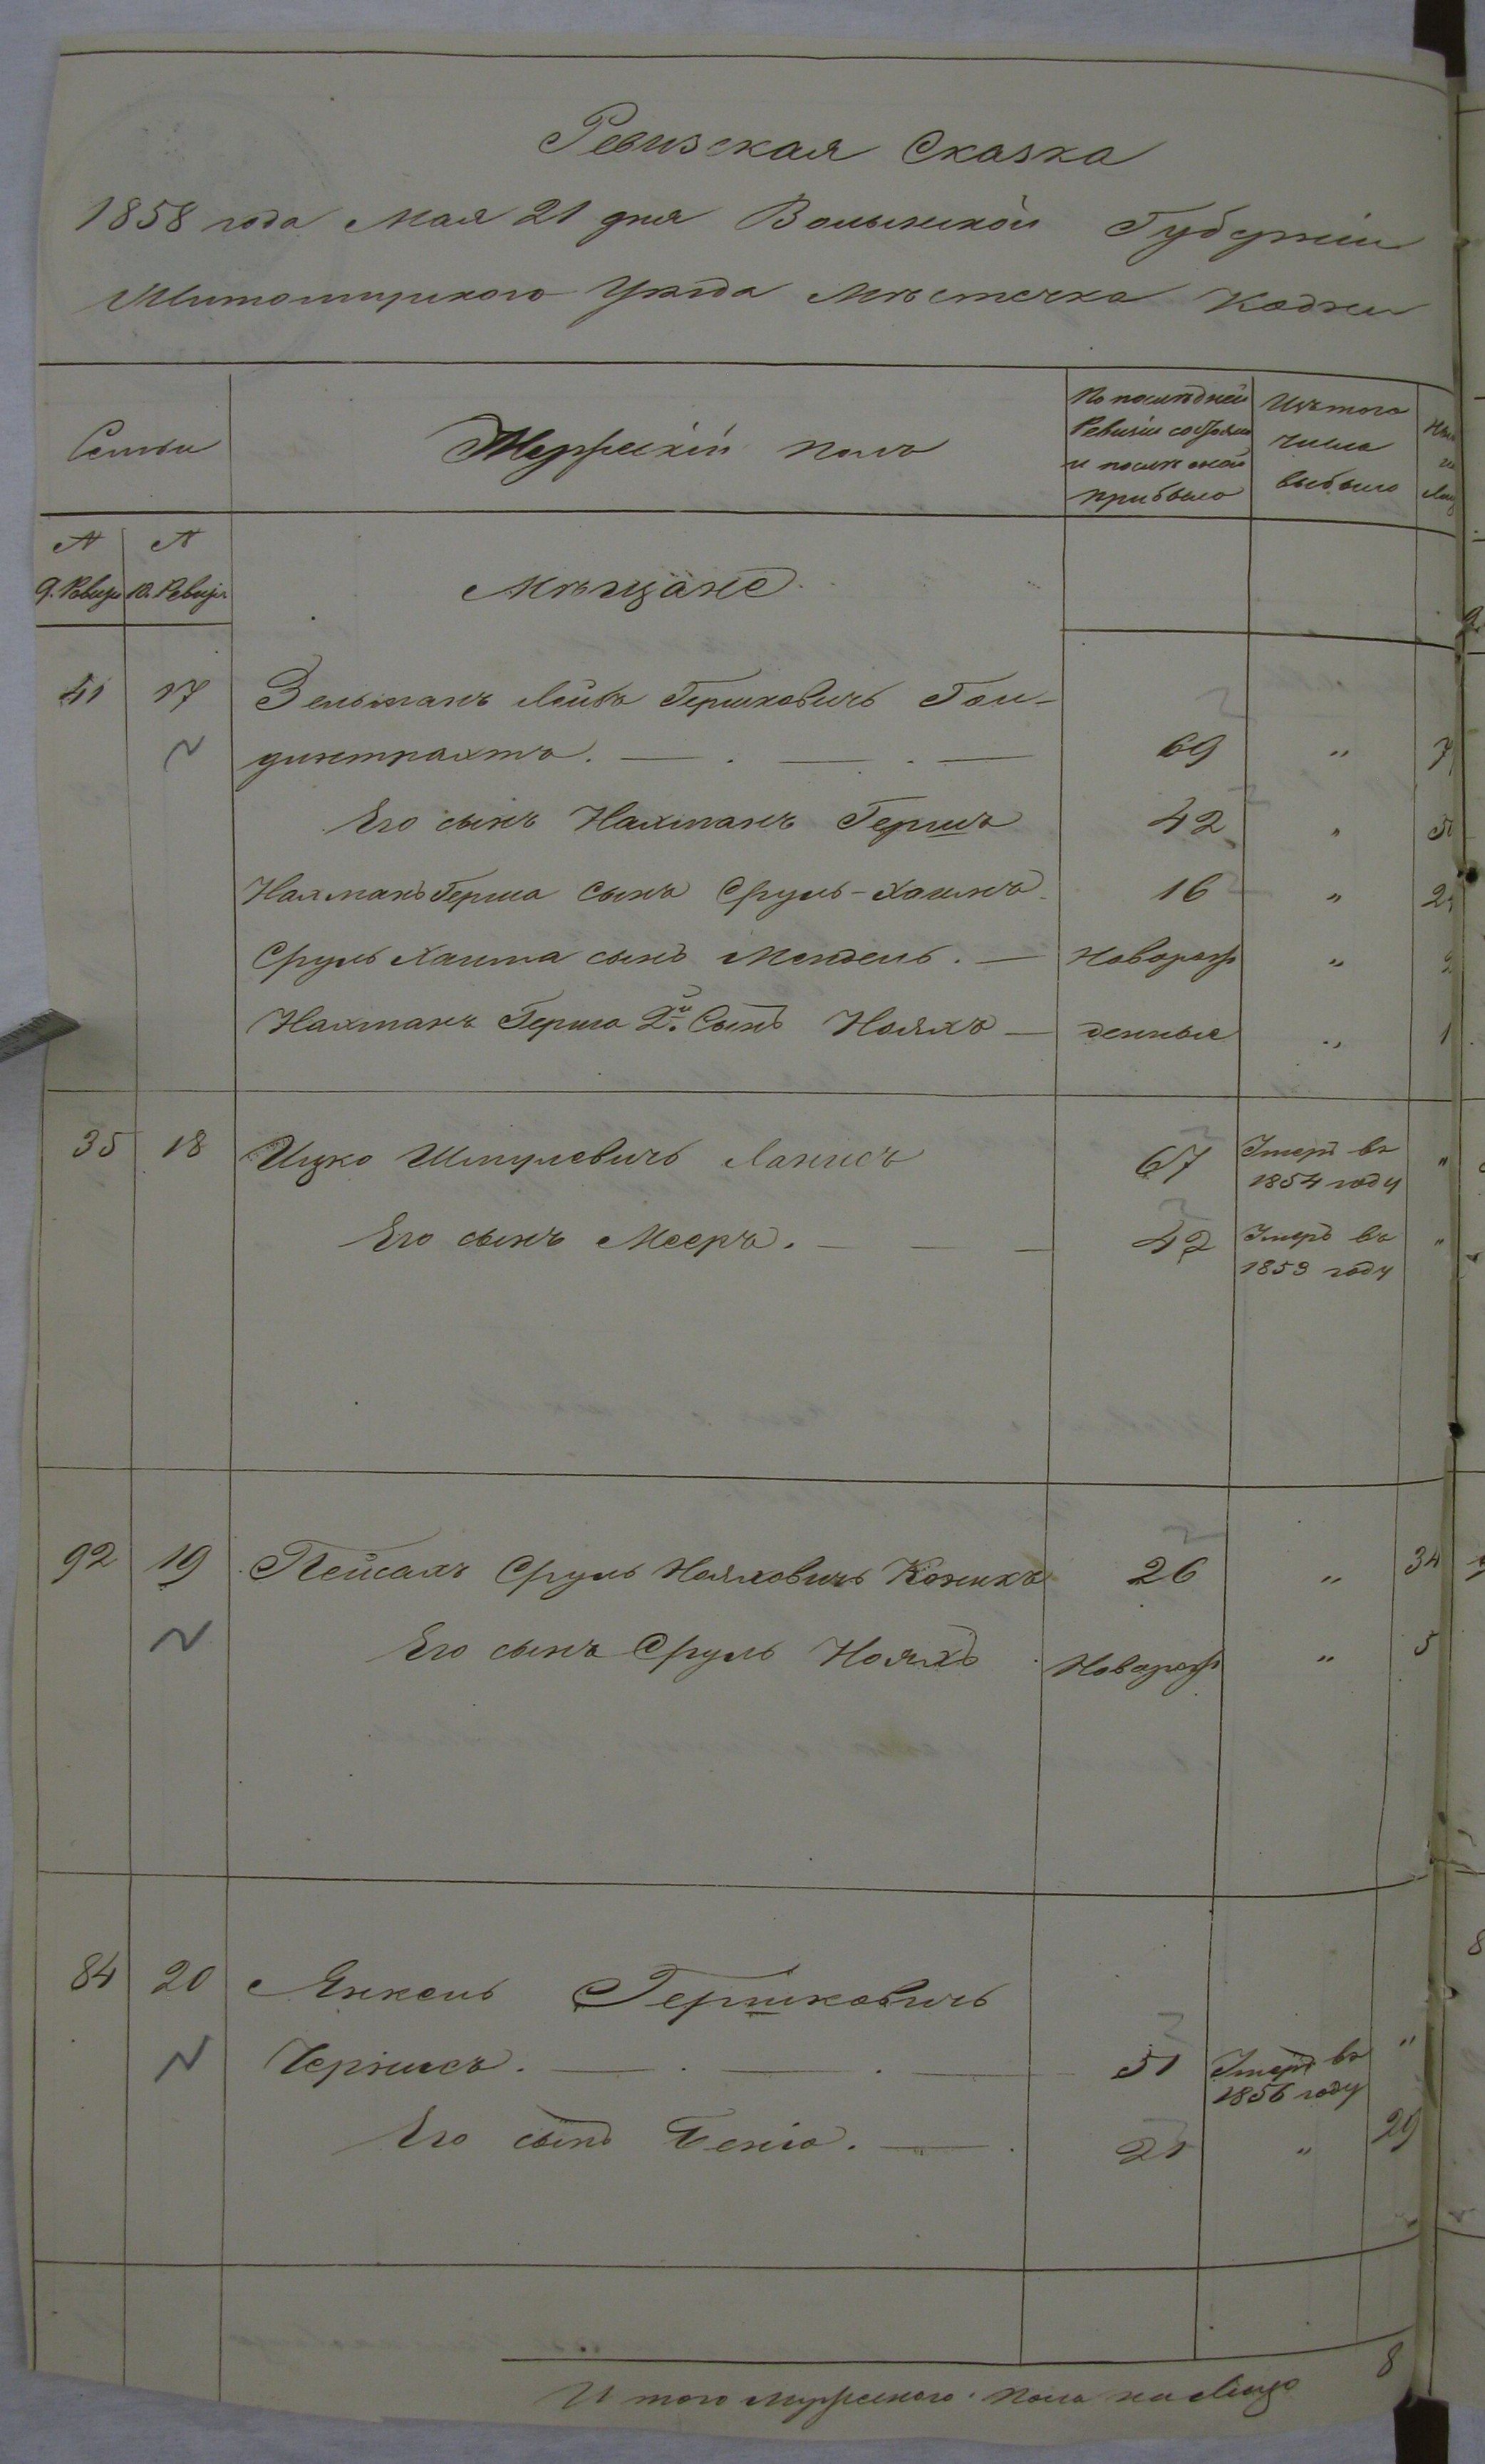 Ревизская Сказка
1858 года Мая 21 дня Волынской Губерніи
Житомирскаго Уѣзда Мѣстечка Кодни
Семьи
Мужескій полъ
По послѣдней Ревизіи состояло и послѣ оной прибыло
Изъ того числа выбыло
№ №
9. Ревиз 10. Ревизіи
Мѣщане
41 17 Зельманъ Лейба Гершковичъ Гол-
динтрахтъ. 69 " 7
Его сынъ Нахманъ Гершъ 42 " 5
Нахманъ Герша сынъ Сруль-Хаимъ 16 " 2
Сруль Хаима сынъ Мендель. Новорож "
Нахманъ Герша 2й Сынъ Нояхъ денные " 1
35 18 Ицко Шмулевичъ 67 Умеръ въ 1854 году "
Его сынъ Мееръ. 42 Умеръ въ 1853 году "
92 19 Пейсахъ Сруль Нояховичъ 26 " 34
Его сынъ Сруль Нояхъ Новорож " 5
84 20 Янкель Гершковичъ
Чернисъ. 51 Умеръ въ 1856 году "
Его сынъ 21 " 29
И того мужескаго пола на лицо 8